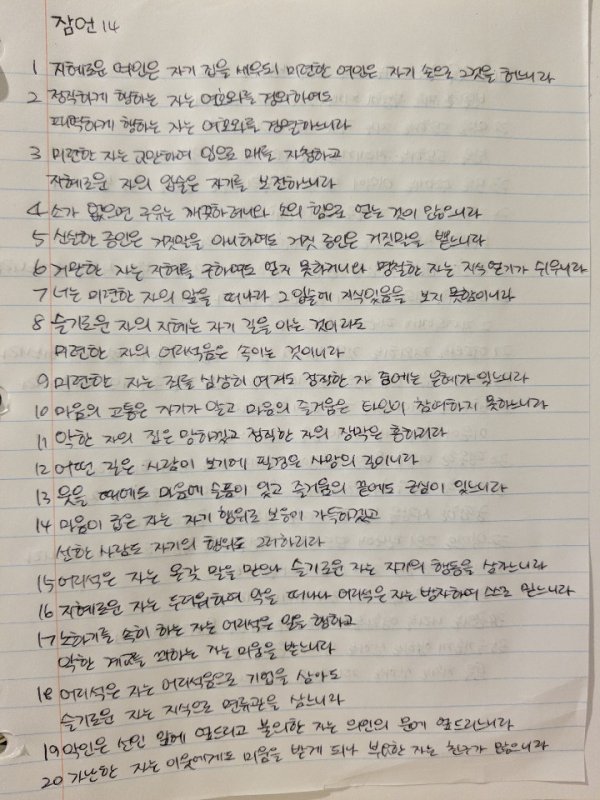 잠언 14
1 지혜로운 여인은 자기 집을 세우되 미련한 여인은 자기 손으로 그것을 허느니라
2 정직하게 행하는 자는 여호와를 경외하여도
패역하게 행하는 자는 여호와를 경멸하느니라
3 미련한 자는 교만하여 입으로 매를 자청하고
지혜로운 자의 입술은 자기를 보전하느니라
4 소가 없으면 구유는 깨끗하려니와 소의 힘으로 얻는 것이 많으니라
5 신실한 증인은 거짓말을 아니하여도 거짓 증인은 거짓말을 뱉느니라
6 거만한 자는 지혜를 구하여도 얻지 못하거니와 명철한 자는 지식 얻기가 쉬우니라
7 너는 미련한 자의 앞을 떠나라 그 입술에 지식있음을 보지 못함이니라
8 슬기로운 자의 지혜는 자기 길을 아는 것이라도
미련한 자의 어리석음은 속이는 것이니라
9 미련한 자는 죄를 심상히 여겨도 정직한 자 중에는 은혜가 있느니라
10 마음의 고통은 자기가 알고 마음의 즐거움은 타인이 참여하지 못하느니라
11 악한 자의 집은 망하겠고 정직한 자의 장막은 흥하리라
12 어떤 길은 사람이 보기에 필경은 사망의 길이니라
13 웃을 때에도 마음에 슬픔이 있고 즐거움의 끝에도 근심이 있느니라
14 마음이 굽은 자는 자기 행위로 보응이 가득하겠고
선한 사람도 자기의 행위로 그러하리라
15 어리석은 자는 온갖 말을 믿으나 슬기로운 자는 자기의 행동을 삼가느니라
16 지혜로운 자는 두려워하여 악을 떠나나 어리석은 자는 방자하여 스스로 믿느니라
17 노하기를 속히 하는 자는 어리석은 일을 행하고
악한 계교를 꾀하는 자는 미움을 받느니라
18 어리석은 자는 어리석음으로 기업을 삼아도
슬기로운 자는 지식으로 면류관을 삼느니라
19 악인은 선인 앞에 엎드리고 불의한 자는 의인의 문에 엎드리느니라
20 가난한 자는 이웃에게도 미움을 받게 되나 부요한 자는 친구가 많으니라